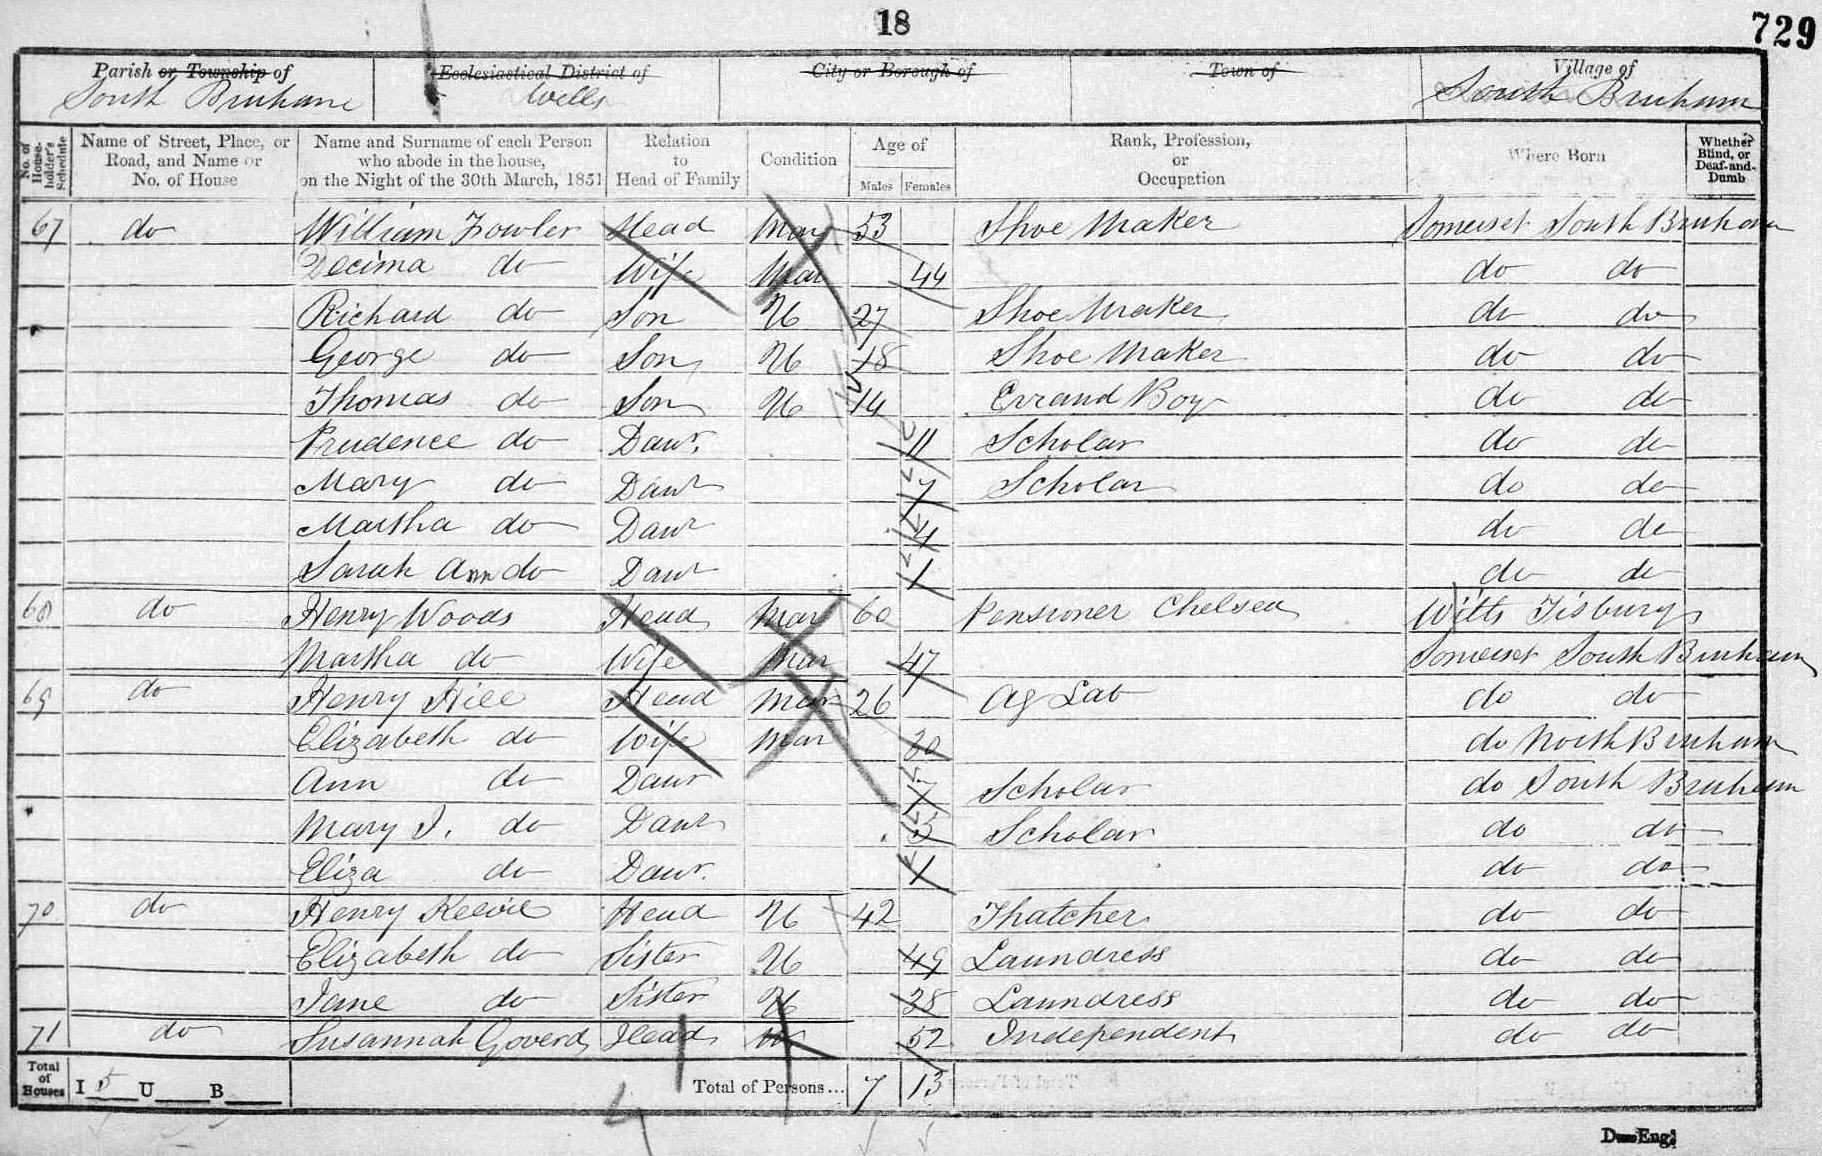 18
729
Parish or Township of Ecclesiastical District of City or Borough of Town of Village of
South Bruham Wells South Bruham
No. of House-holder's Schedule Name of Street, Place, or Road, and Name or No. of House Name and Surname of each Person who abode in the house, on the Night of the 30th March, 1851 Relation to Head of Family Condition Age of Males Females Rank, Profession, or Occupation Where Born Whether Blind, or Deaf-and-Dumb
67 do William Fowler Head Mar 53 Shoe Maker Somerset South Bruham
Decima do Wife Mar 44 do do
Richard do Son U 27 Shoe Maker do do
George do Son U 18 Shoe Maker do do
Thomas do Son U 14 Errand Boy do do
Prudence do Daur. 11 Scholar do do
Mary do Daur 7 Scholar do do
Martha do Daur 4 do do
Sarah Ann do Daur 1 do do
68 do Henry Woods Head Mar 60 Pensioner Chelsea Wilts Tisbury
Martha do Wife Mar 47 Somerset South Bruham
69 do Henry Hill Head Mar 26 Ag Lab do do
Elizabeth do Wife Mar 30 do North Bruham
Ann do Daur 7 Scholar do South Bruham
Mary J. do Daur 5 Scholar do do
Eliza do Daur. 1 do do
70 do Henry Head U 42 Thatcher do do
Elizabeth do Sister U 49 Laundress do do
Jane do Sister U Laundress do do
71 do Susannah Goverd Head W 52 Independent do do
Total of Houses I 5 U B Total of Persons... 7 13
4
Eng.